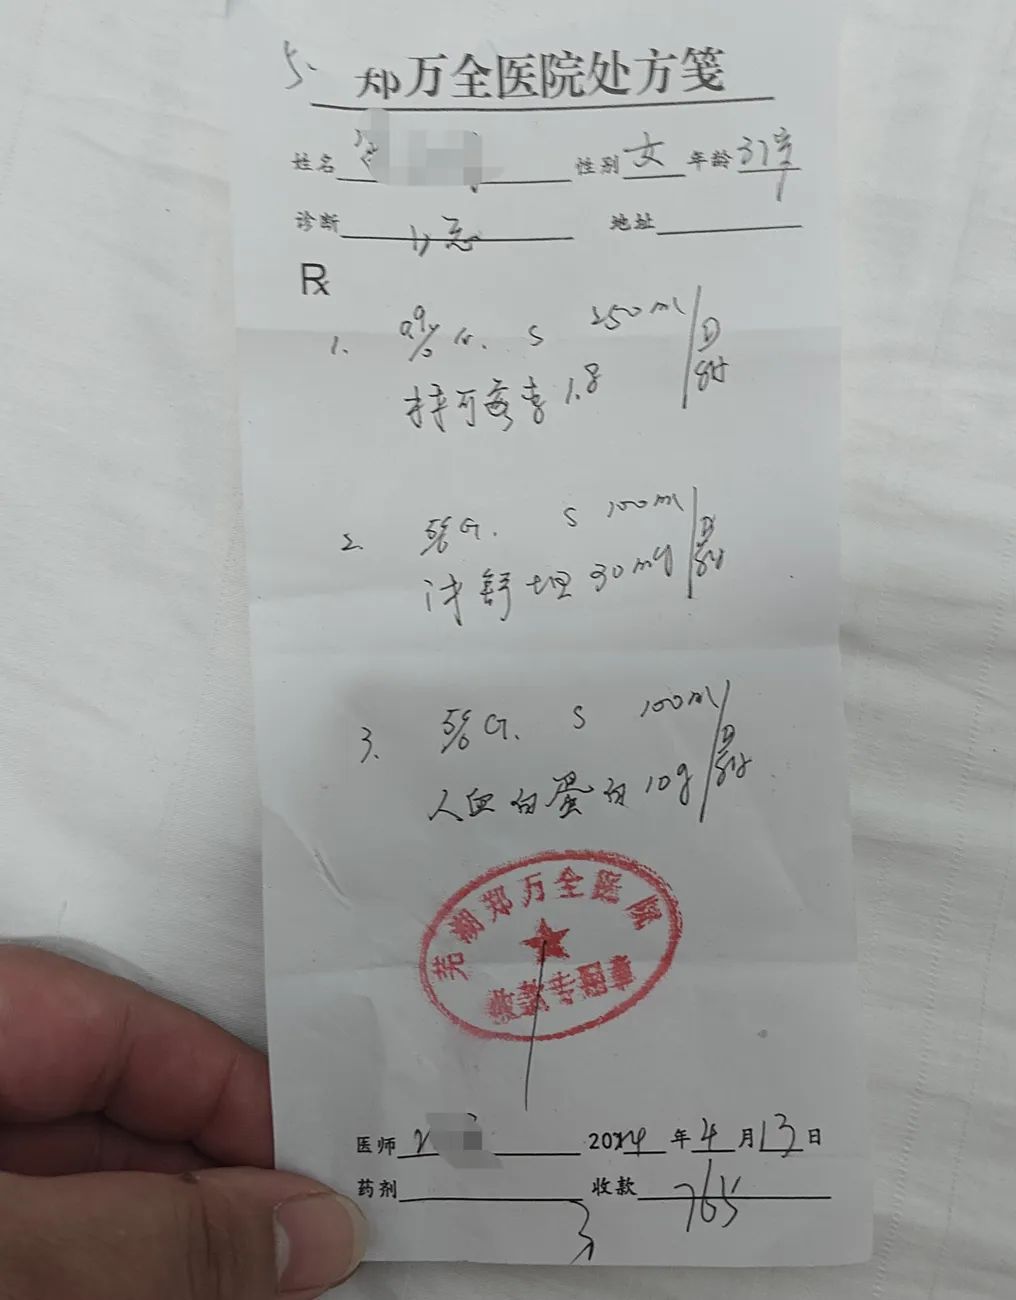 5.
郑万全医院处方笺
姓名 性别 女 年龄 37岁
诊断 地址
R
1. 0.9% N. S 250ml
1.8
2. 5% G. S 100ml
30mg
3. 5% G. S 100ml
人血白蛋白 10g
芜湖郑万全医院
收款专用章
医师 2024 年 4 月 13 日
药剂 收款 765